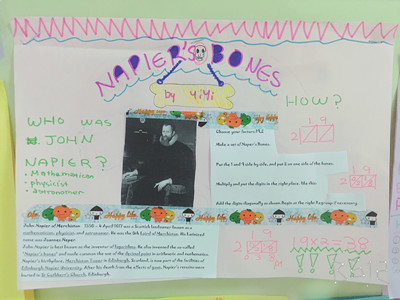 NAPIER'S BONES
by YiYi
WHO WAS
JOHN
NAPIER?
• Mathematician
• physicist
• astronomer
HOW?
Happy life
Choose your factors 19,2
Make a set of Napier's bones
Put the 1 and 9 side by side, and put 2 on one side of the bones
Multiply and put the digits in the right place, like this:
Add the digits diagonally as shown. Begin at the right. Regroup if necessary.
1 9
2
1 9
2
1 9
2
19x2=38
John Napier of Merchiston (1550 – 4 April 1617) was a Scottish landowner known as a
mathematician, physicist, and astronomer. He was the 8th Laird of Merchiston. His Latinized
name was Joannes Neper.
John Napier is best known as the inventor of logarithms. He also invented the so-called
"Napier's bones" and made common the use of the decimal point in arithmetic and mathematics.
Napier's birthplace, Merchiston Tower in Edinburgh, Scotland, is now part of the facilities of
Edinburgh Napier University. After his death from the effects of gout, Napier's remains were
buried in St Cuthbert's Church, Edinburgh.